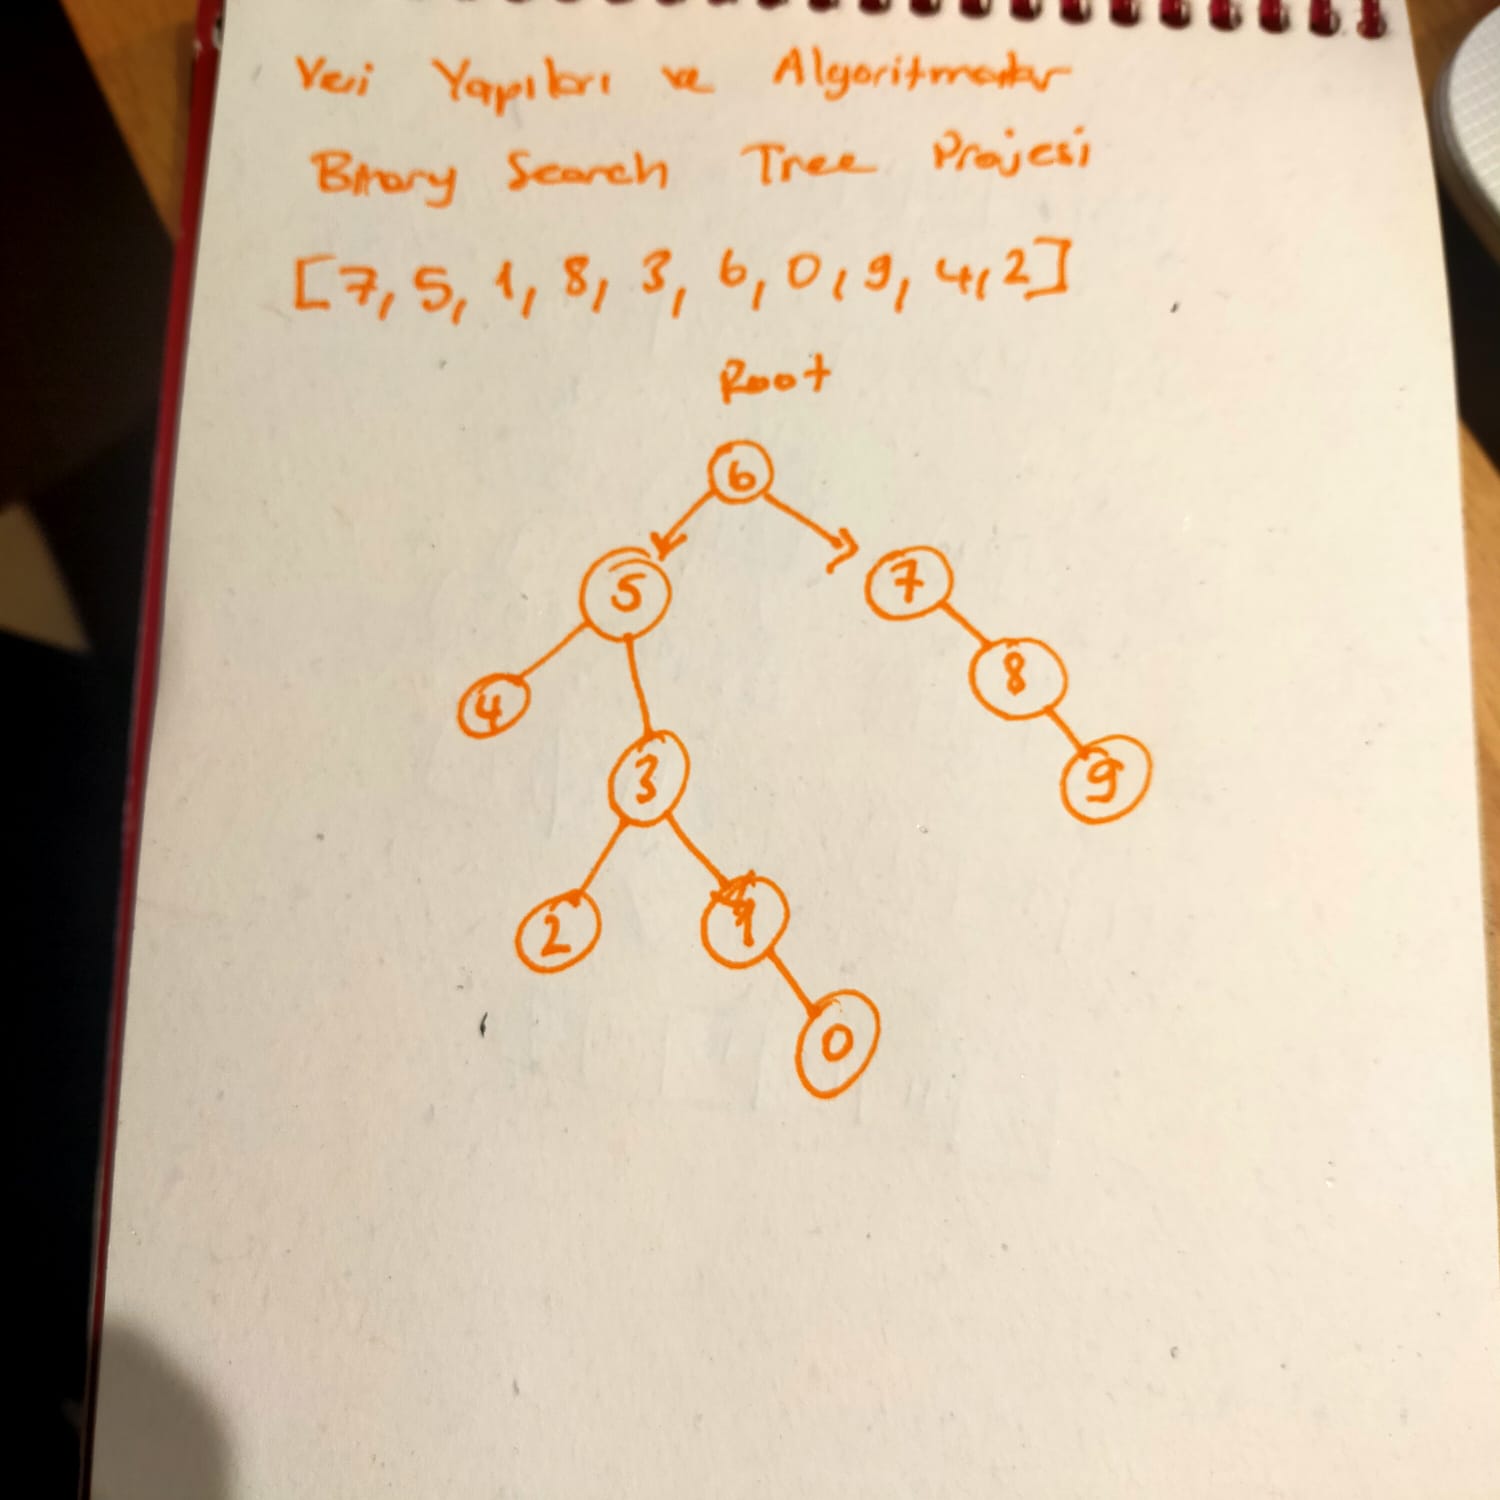 Veri Yapıları ve Algoritmalar
Binary Search Tree Projesi
[7, 5, 1, 8, 3, 6, 0, 9, 4, 2]
Root
6
5
7
4
8
3
9
2
1
0